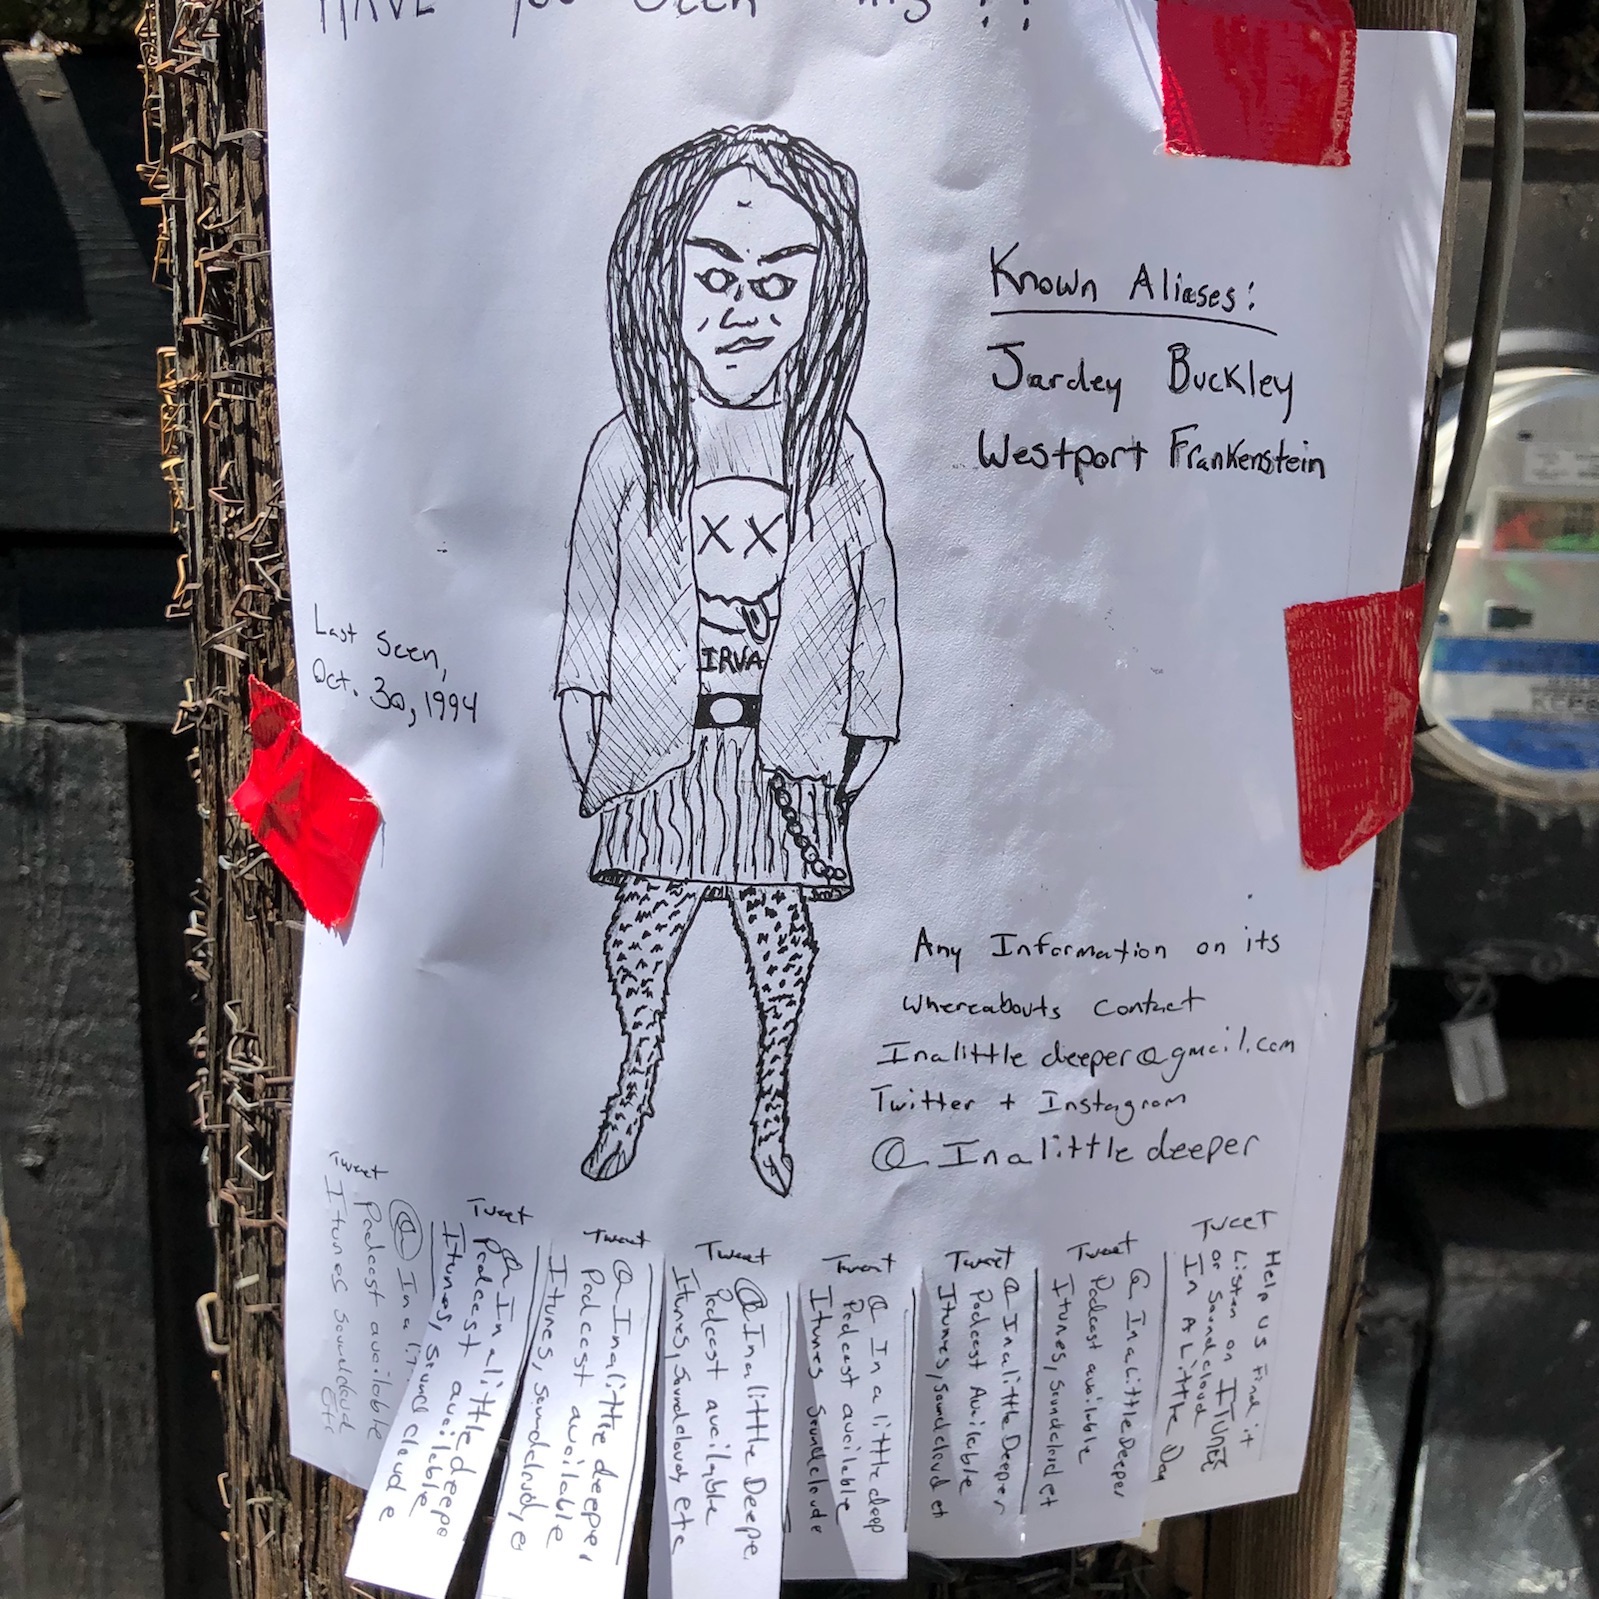 HAVE YOU Seen this??
Known Aliases:
Jardey Buckley
Westport Frankenstein
X X
IRVA
Last Seen,
Oct. 30, 1994
Any Information on its
whereabouts contact
Inalittle deeper@gmail.com
Twitter + Instagram
@ Inalittle deeper
Tweet
@ Ina litt
Podcast available
Itunes soundcloud
Etc
Tweet
@ In alittle deepe
Podcast available
Itunes, Soundcloud e
Tweet
@ Inalittle deeper,
Podcast available
Itunes, soundcloud, e
Tweet
@ Inalittle Deepe.
Podcast available
Itunes, Soundcloud, etc
Tweet
@ In a little deep
Podcast available
Itunes Soundcloude
Tweet
@ Inalittle Deeper
Podcast Available
Itunes, Soundcloud et
Tweet
@ InaLittleDeeper
Podcast available
Itunes, Soundcloud et
Tweet
Help us Find it
Listen on ITUNES
or Soundcloud
In A Little Dee